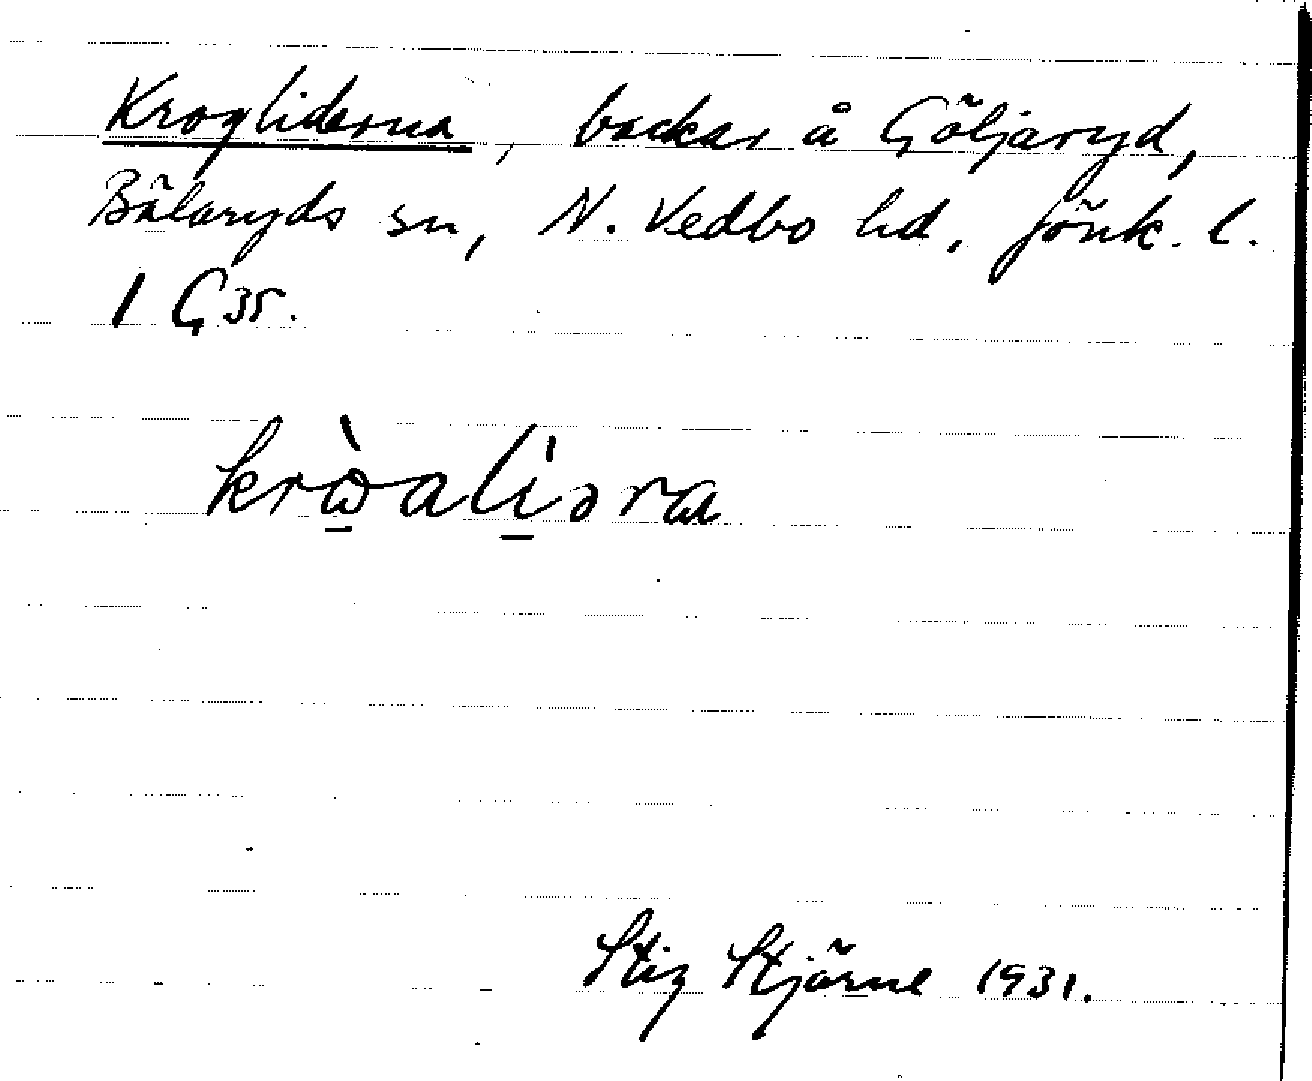 Krogliderna, backar å Göljaryd,
Bälaryds sn, N. Vedbo hd, Jönk. l.
1 G 35.
krὼaliɔra
Stig Stjärne 1931.